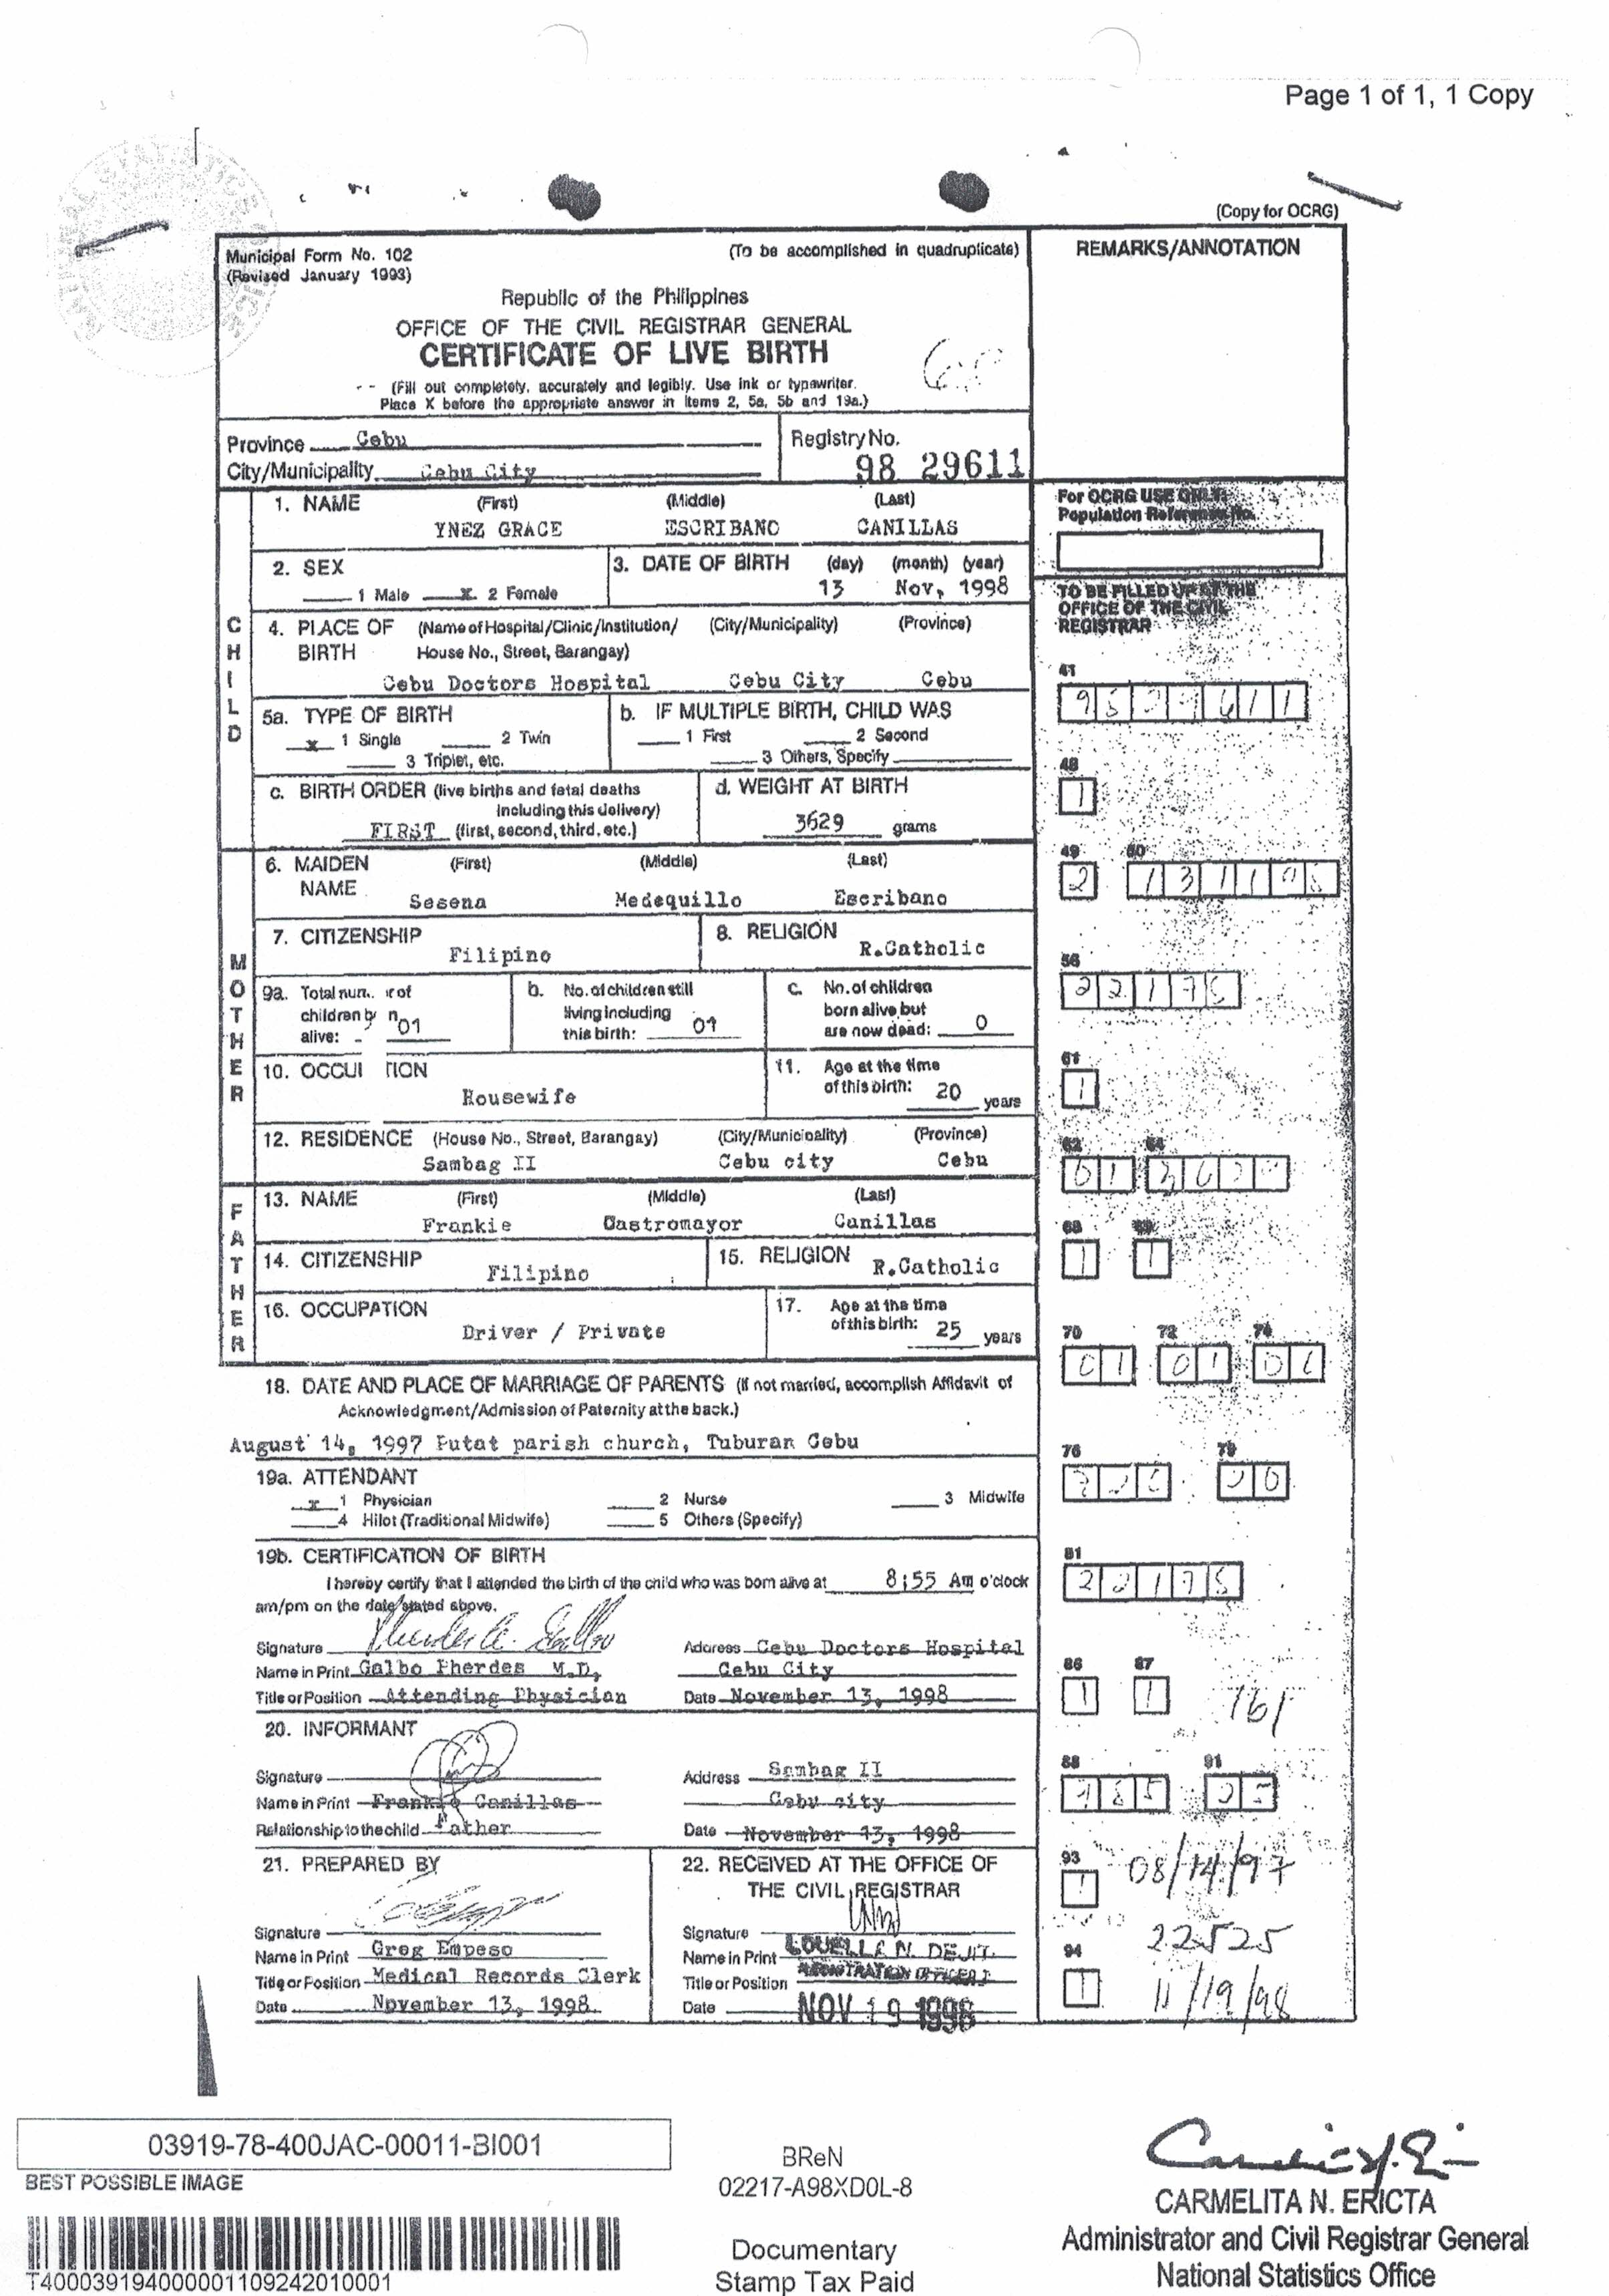 Page 1 of 1, 1 Copy
(Copy for OCRG)
Municipal Form No. 102
(Revised January 1993)
(To be accomplished in quadruplicate)
Republic of the Philippines
OFFICE OF THE CIVIL REGISTRAR GENERAL
CERTIFICATE OF LIVE BIRTH
(Fill out completely, accurately and legibly. Use ink or typewriter.
Place X before the appropriate answer in Items 2, 5a, 5b and 19a.)
REMARKS/ANNOTATION
Province Cebu
City/Municipality Cebu City
Registry No.
98 29611
CHILD
1. NAME (First) (Middle) (Last)
YNEZ GRACE ESCRIBANO CANILLAS
2. SEX
1 Male X 2 Female
3. DATE OF BIRTH (day) (month) (year)
13 Nov, 1998
4. PLACE OF BIRTH (Name of Hospital/Clinic/Institution/ House No., Street, Barangay) (City/Municipality) (Province)
Cebu Doctors Hospital Cebu City Cebu
5a. TYPE OF BIRTH
x 1 Single 2 Twin
3 Triplet, etc.
b. IF MULTIPLE BIRTH, CHILD WAS
1 First 2 Second
3 Others, Specify
c. BIRTH ORDER (live births and fetal deaths
including this delivery)
FIRST (first, second, third, etc.)
d. WEIGHT AT BIRTH
3629 grams
MOTHER
6. MAIDEN NAME (First) (Middle) (Last)
Sesena Medequillo Escribano
7. CITIZENSHIP
Filipino
8. RELIGION
R.Catholic
9a. Total num
children
alive: 01
b. No. of children still
living including
this birth: 01
c. No. of children
born alive but
are now dead: 0
10. OCCU TION
Housewife
11. Age at the time
of this birth: 20 years
12. RESIDENCE (House No., Street, Barangay) (City/Municipality) (Province)
Sambag II Cebu city Cebu
FATHER
13. NAME (First) (Middle) (Last)
Frankie Castromayor Canillas
14. CITIZENSHIP
Filipino
15. RELIGION
R.Catholic
16. OCCUPATION
Driver / Private
17. Age at the time
of this birth: 25 years
18. DATE AND PLACE OF MARRIAGE OF PARENTS (If not married, accomplish Affidavit of
Acknowledgment/Admission of Paternity at the back.)
August 14, 1997 Putat parish church, Tuburan Cebu
19a. ATTENDANT
x 1 Physician 2 Nurse 3 Midwife
4 Hilot (Traditional Midwife) 5 Others (Specify)
19b. CERTIFICATION OF BIRTH
I hereby certify that I attended the birth of the child who was born alive at 8:55 Am o'clock
am/pm on the date stated above.
Signature
Name in Print Galbo Pherdes M.D,
Title or Position Attending Physician
Address Cebu Doctors Hospital
Cebu City
Date November 13, 1998
20. INFORMANT
Signature
Name in Print Frankie Canillas
Relationship to the child Father
Address Sambag II
Cebu city
Date November 13, 1998
21. PREPARED BY
Signature
Name in Print Greg Empeso
Title or Position Medical Records Clerk
Date November 13, 1998
22. RECEIVED AT THE OFFICE OF
THE CIVIL REGISTRAR
Signature
Name in Print
Title or Position
Date NOV 19 1998
For OCRG USE ONLY:
Population Reference No.
TO BE FILLED UP AT THE
OFFICE OF THE CIVIL
REGISTRAR
41
48
1
49 50
2 131198
56
61
1
62 64
01
68 69
1 1
70 72 74
01 01
76 79
81
86 87
1 1
161
88 91
93
1
08/14/97
22525
94
1
11/19/98
03919-78-400JAC-00011-BI001
BEST POSSIBLE IMAGE
T400039194000001109242010001
BReN
02217-A98XD0L-8
Documentary
Stamp Tax Paid
CARMELITA N. ERICTA
Administrator and Civil Registrar General
National Statistics Office